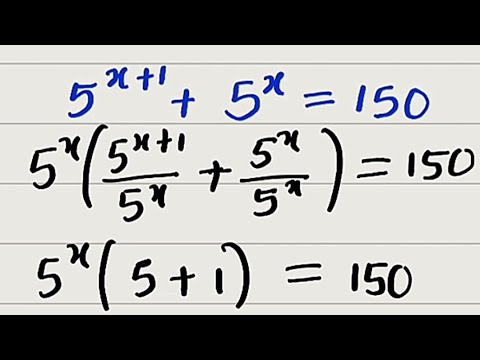 5^{x+1} + 5^x = 150
5^x(\frac{5^{x+1}}{5^x} + \frac{5^x}{5^x}) = 150
5^x(5+1) = 150